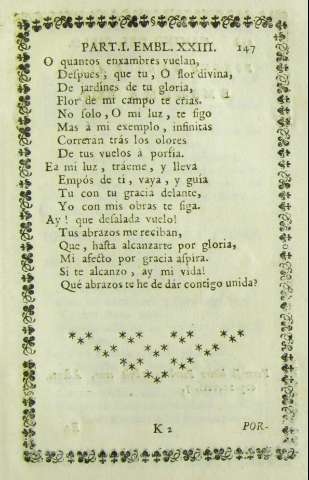 PART. I. EMBL. XXIII. 147
O quantos enxambres vuelan,
Deſpues, que tu, O flor divina,
De jardines de tu gloria,
Flor de mi campo te crias.
No ſolo, O mi luz, te ſigo
Mas à mi exemplo, infinitas
Correràn tràs los olores
De tus vuelos à porfia.
Ea mi luz, tràeme, y lleva
Empòs de ti, vaya, y guia
Tu con tu gracia delante,
Yo con mis obras te ſiga.
Ay! que deſalada vuelo!
Tus abrazos me reciban,
Que, haſta alcanzarte por gloria,
Mi afecto por gracia aſpira.
Si te alcanzo, ay mi vida!
Què abrazos te he de dàr contigo unida?
K 2 POR-